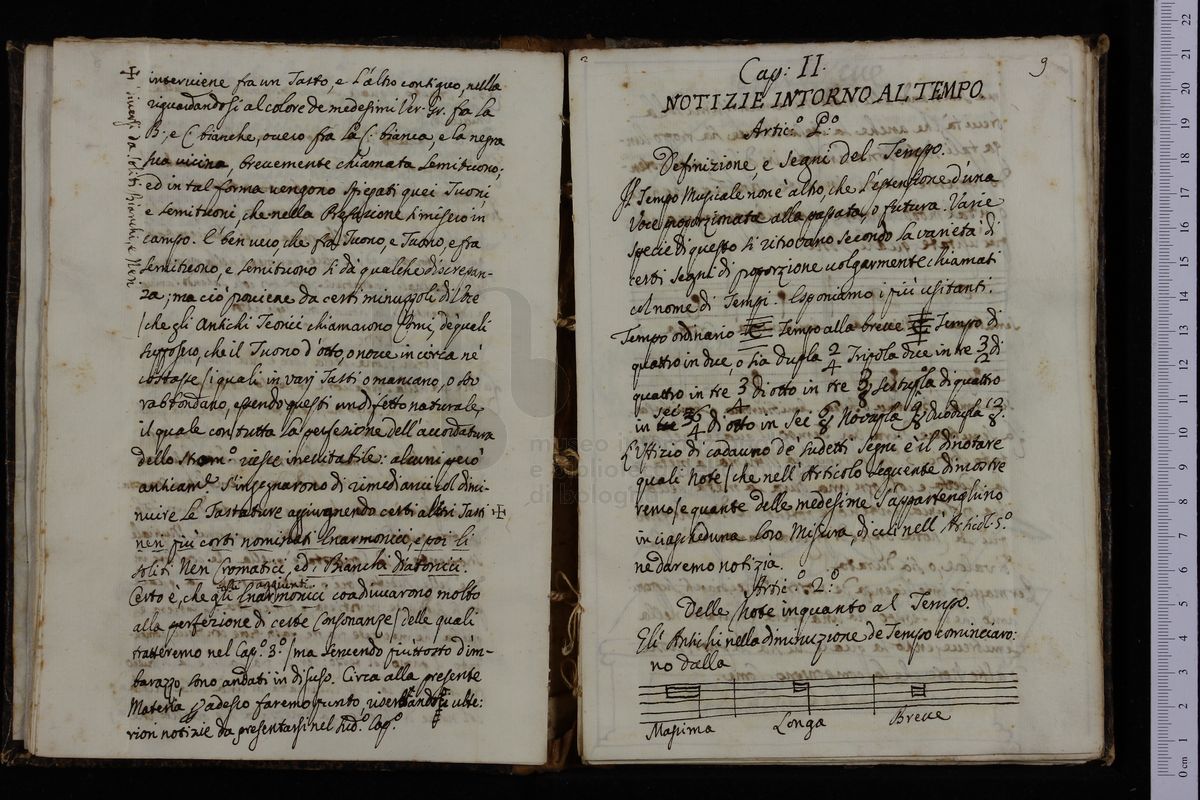 interviene fra un Tasto, e l'altro contiguo, nulla
riguardandosi al colore de medesimi Ver: Gr: fra la
B; e C bianche, overo fra la bianca, e la negra
sua vicina, brevemente chiamata Semituono;
ed in tal forma vengono spiegati quei Tuoni,
e Semituoni, che nella Prefazione si misero in
campo. E' ben vero, che fra Tuono, e Tuono, e fra
Semituono, e Semituono si dà qualche discrepan-
za; ma ciò proviene da certi minuzzoli di
(che gli Antichi Teorici chiamarono Comi, de quali
supposero, che il Tuono d'otto, o nove in circa ne
costasse) i quali in varj Tasti o mancano, o sov
rabbondano, essendo questi un difetto naturale
il quale con tutta la perfezione dell'accordatura
dello Strom.º riesce inevitabile: alcuni però
anticam.e s'insegnarono di rimediarvi col dimi-
nuire le Tastature aggiungendo certi altri Tasti ✠
neri più corti nominati Enarmonici, e poi li
soliti Neri Cromatici, ed i Bianchi Diatonici.
Certo è, che gli Enarmonici coadiuvarono molto
aggiunti
alla perfezione di certe Consonanze (delle quali
tratteremo nel Cap.º 3.º) ma Servendo piuttosto d'im-
barazzo, sono andati in disuso. Circa alla presente
Materia p adesso faremo punto, riserbandosi ulte:
riori notizie da presentarsi nel Sud.º Cap.º
✠ inversi da soliti Bianchi, e Neri
2
9
Cap: II.
NOTIZIE INTORNO AL TEMPO.
Artic.º P.º
Definizione, e Segni del Tempo.
Il Tempo Musicale non è altro, che l'estensione d'una
Voce proporzionata alla passata, o futura. Varie
specie di questo si ritrovano secondo la varietà di
certi Segni di proporzione volgarmente chiamati
col nome di Tempi. Esponiamo i più usitanti.
Tempo ordinario C Tempo alla breve ₵ Tempo di
quattro in due, o sia Dupla 2/4 Tripola due in tre 3/2 di
quattro in tre 3/4 di otto in tre 3/8 Sestupla di quattro
in sei 6/4 di otto in Sei 6/8 Novupla 9/8 Duodupla 12/8.
L'Uffizio di cadauno de sudetti Segni è il dinotare
quali Note (che nell'Articolo seguente dimostre
remo) e quante delle medesime s'appartenghino
in ciascheduna loro Misura, di cui nell'Articol. 5.º
ne daremo notizia.
Artic.º 2.º
Delle Note inquanto al Tempo.
Gli Antichi nella diminuzione de Tempo cominciaro:
no dalla
Massima Longa Breve
museo in
e biblio
di bologna